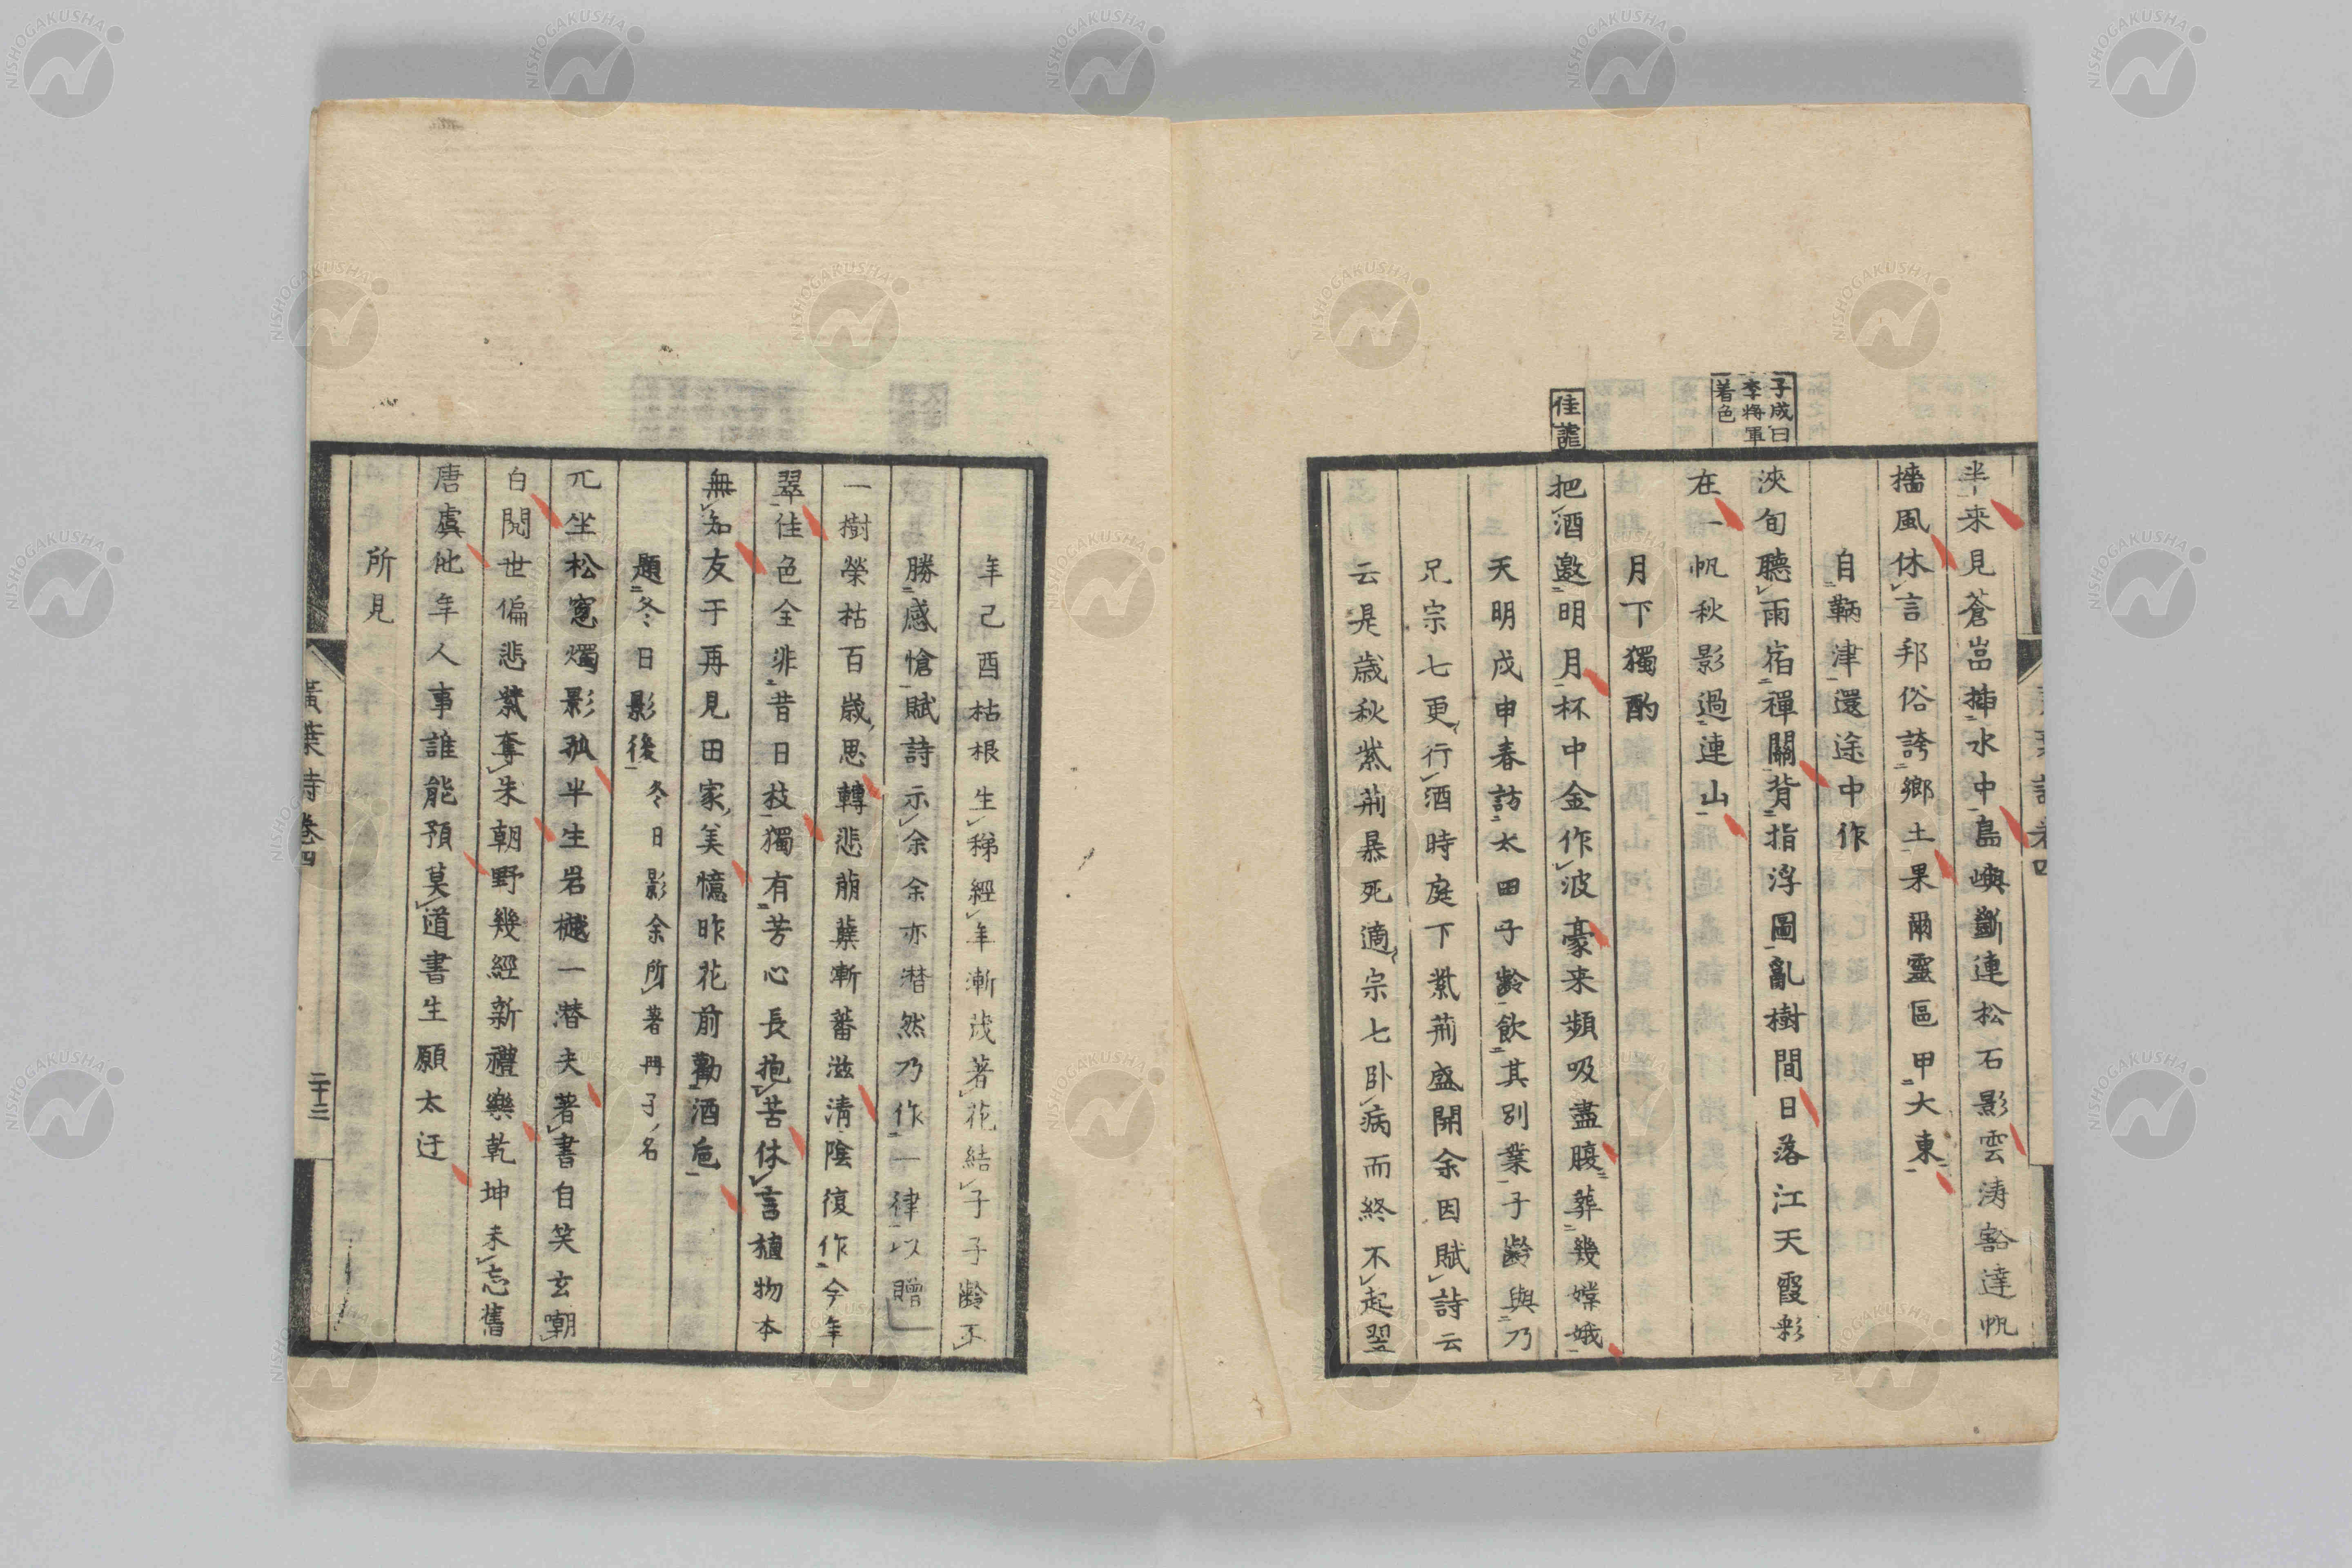 子成曰
李將軍
着色
佳謔
半来見蒼嵓揷水中島嶼斷連松石影雲涛豁達帆
檣風休言邦俗誇鄉土果爾靈區甲大東
自鞆津還途中作
浹旬聽雨宿禪關背指浮圖亂樹間日落江天霞彩
在一帆秋影過連山
月下獨酌
把酒邀明月杯中金作波豪来頻吸盡腹葬幾嫦娥
天明戊申春訪太田子齡飲其別業子齡與乃
兄宗七更行酒時庭下紫荊盛開余因賦詩云
云是歲秋紫荊暴死適宗七臥病而終不起翌
年己酉枯根生稊經年漸茂著花結子子齡不
勝感愴賦詩示余余亦潸然乃作一律以贈
一樹榮枯百歲思轉悲萠蘖漸蕃滋清陰復作今年
翠佳色全非昔日枝獨有芳心長抱苦休言植物本
無知友于再見田家美憶昨花前勸酒巵
題冬日影後 冬日影余所著冊子名
兀坐松窓燭影孤半生岩樾一潜夫著書自笑玄嘲
白閱世偏悲紫奪朱朝野幾經新禮樂乾坤未忘舊
唐虞他年人事誰能預莫道書生願太迂
所見
黃葉詩卷四
二十三
NISHOGAKUSHA